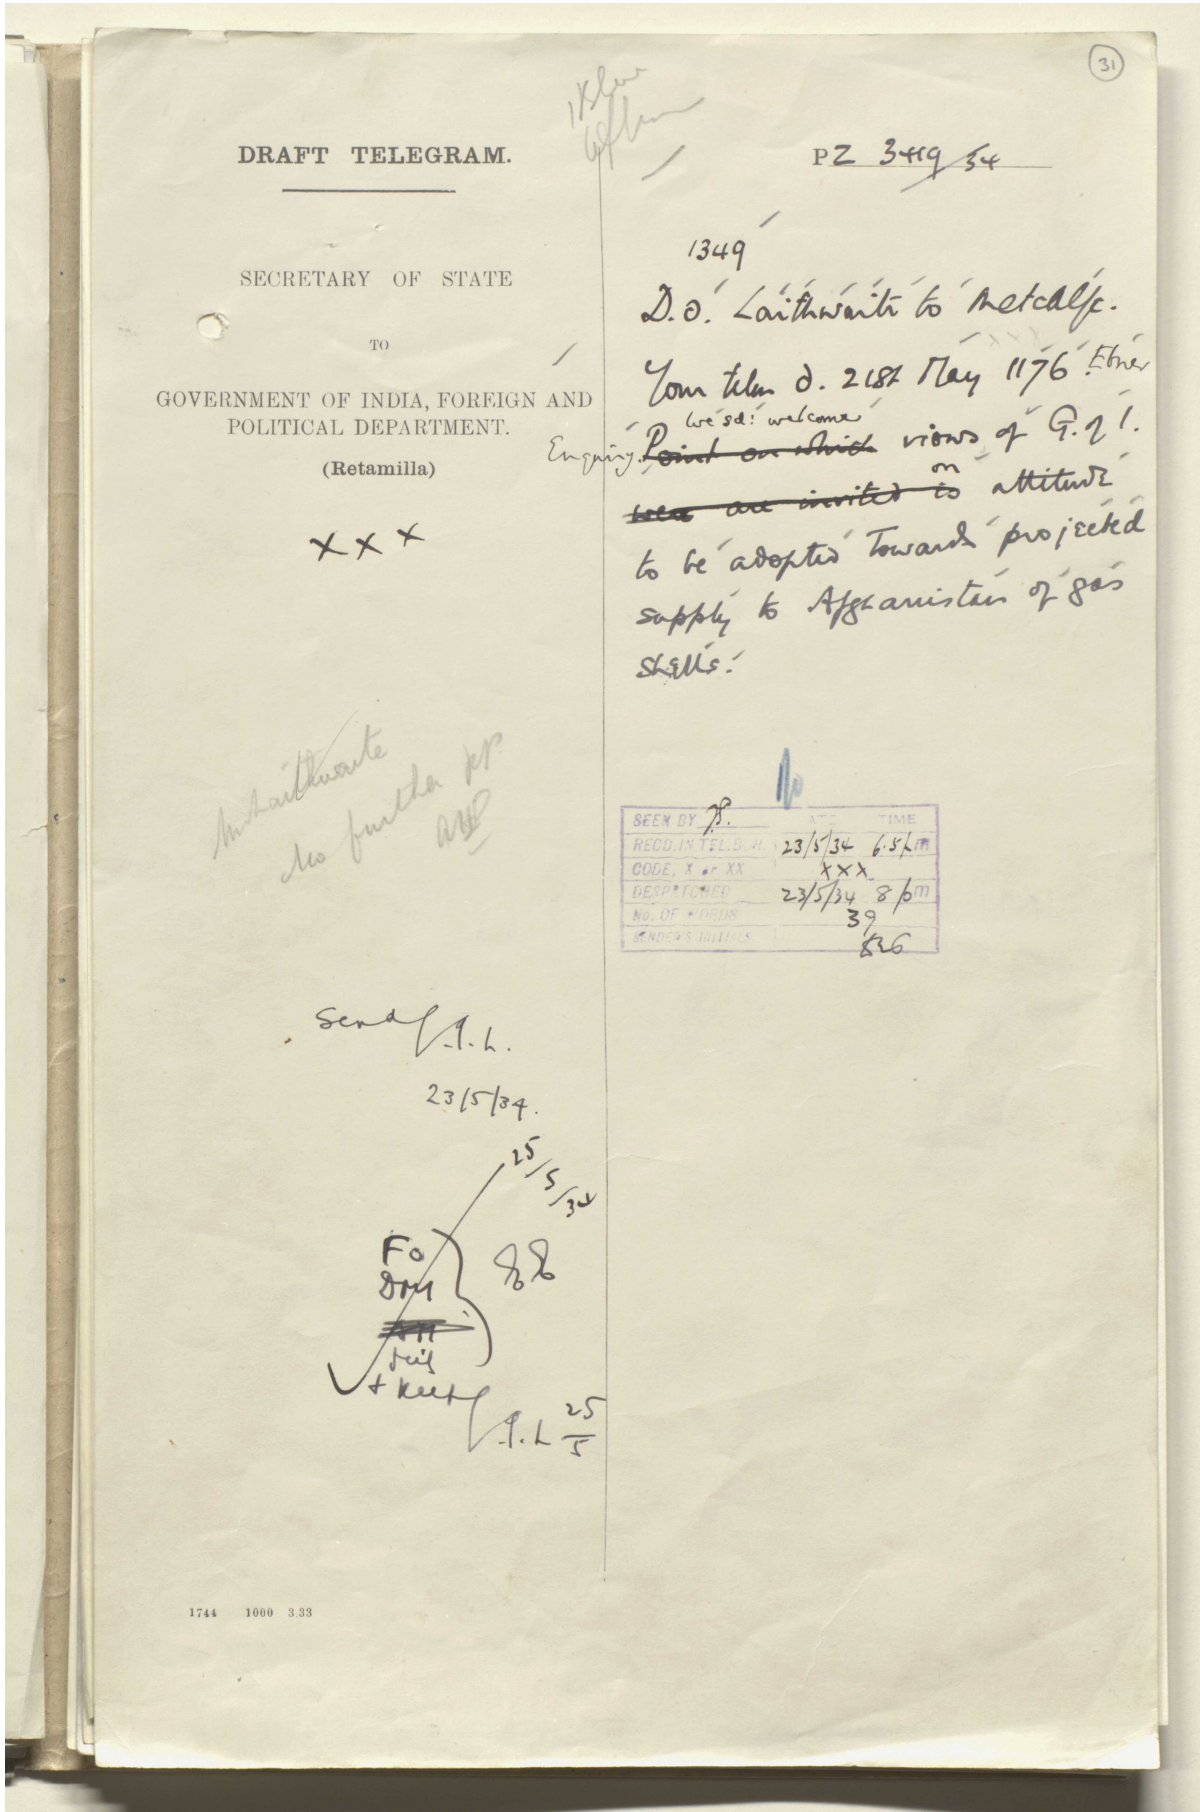 31
DRAFT TELEGRAM.
SECRETARY OF STATE
TO
GOVERNMENT OF INDIA, FOREIGN AND
POLITICAL DEPARTMENT.
(Retamilla)
XXX
Mr Laithwaite
No further
Send
23/5/34.
25/5/34
FO
25/5
1744 1000 3.33
PZ 3419/34
1349
D.O. Laithwaite to Metcalfe.
Your telm d. 21st May 1176.
we sd. welcome
Enquiry. Point on which views of G. of I.
were are invited is on attitude
to be adopted towards projected
supply to Afghanistan of gas
shells.
SEEN BY DATE TIME
RECD. IN TEL. BCH. 23/5/34 6.5 pm
CODE, X or XX XXX
DESPATCHED 23/5/34 8 pm
No. OF WORDS 39
SENDER'S INITIALS